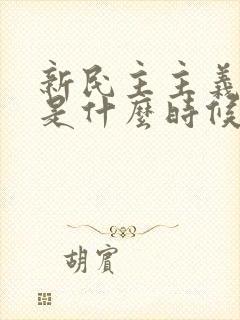 新民主主義
是什麼時候
胡賓